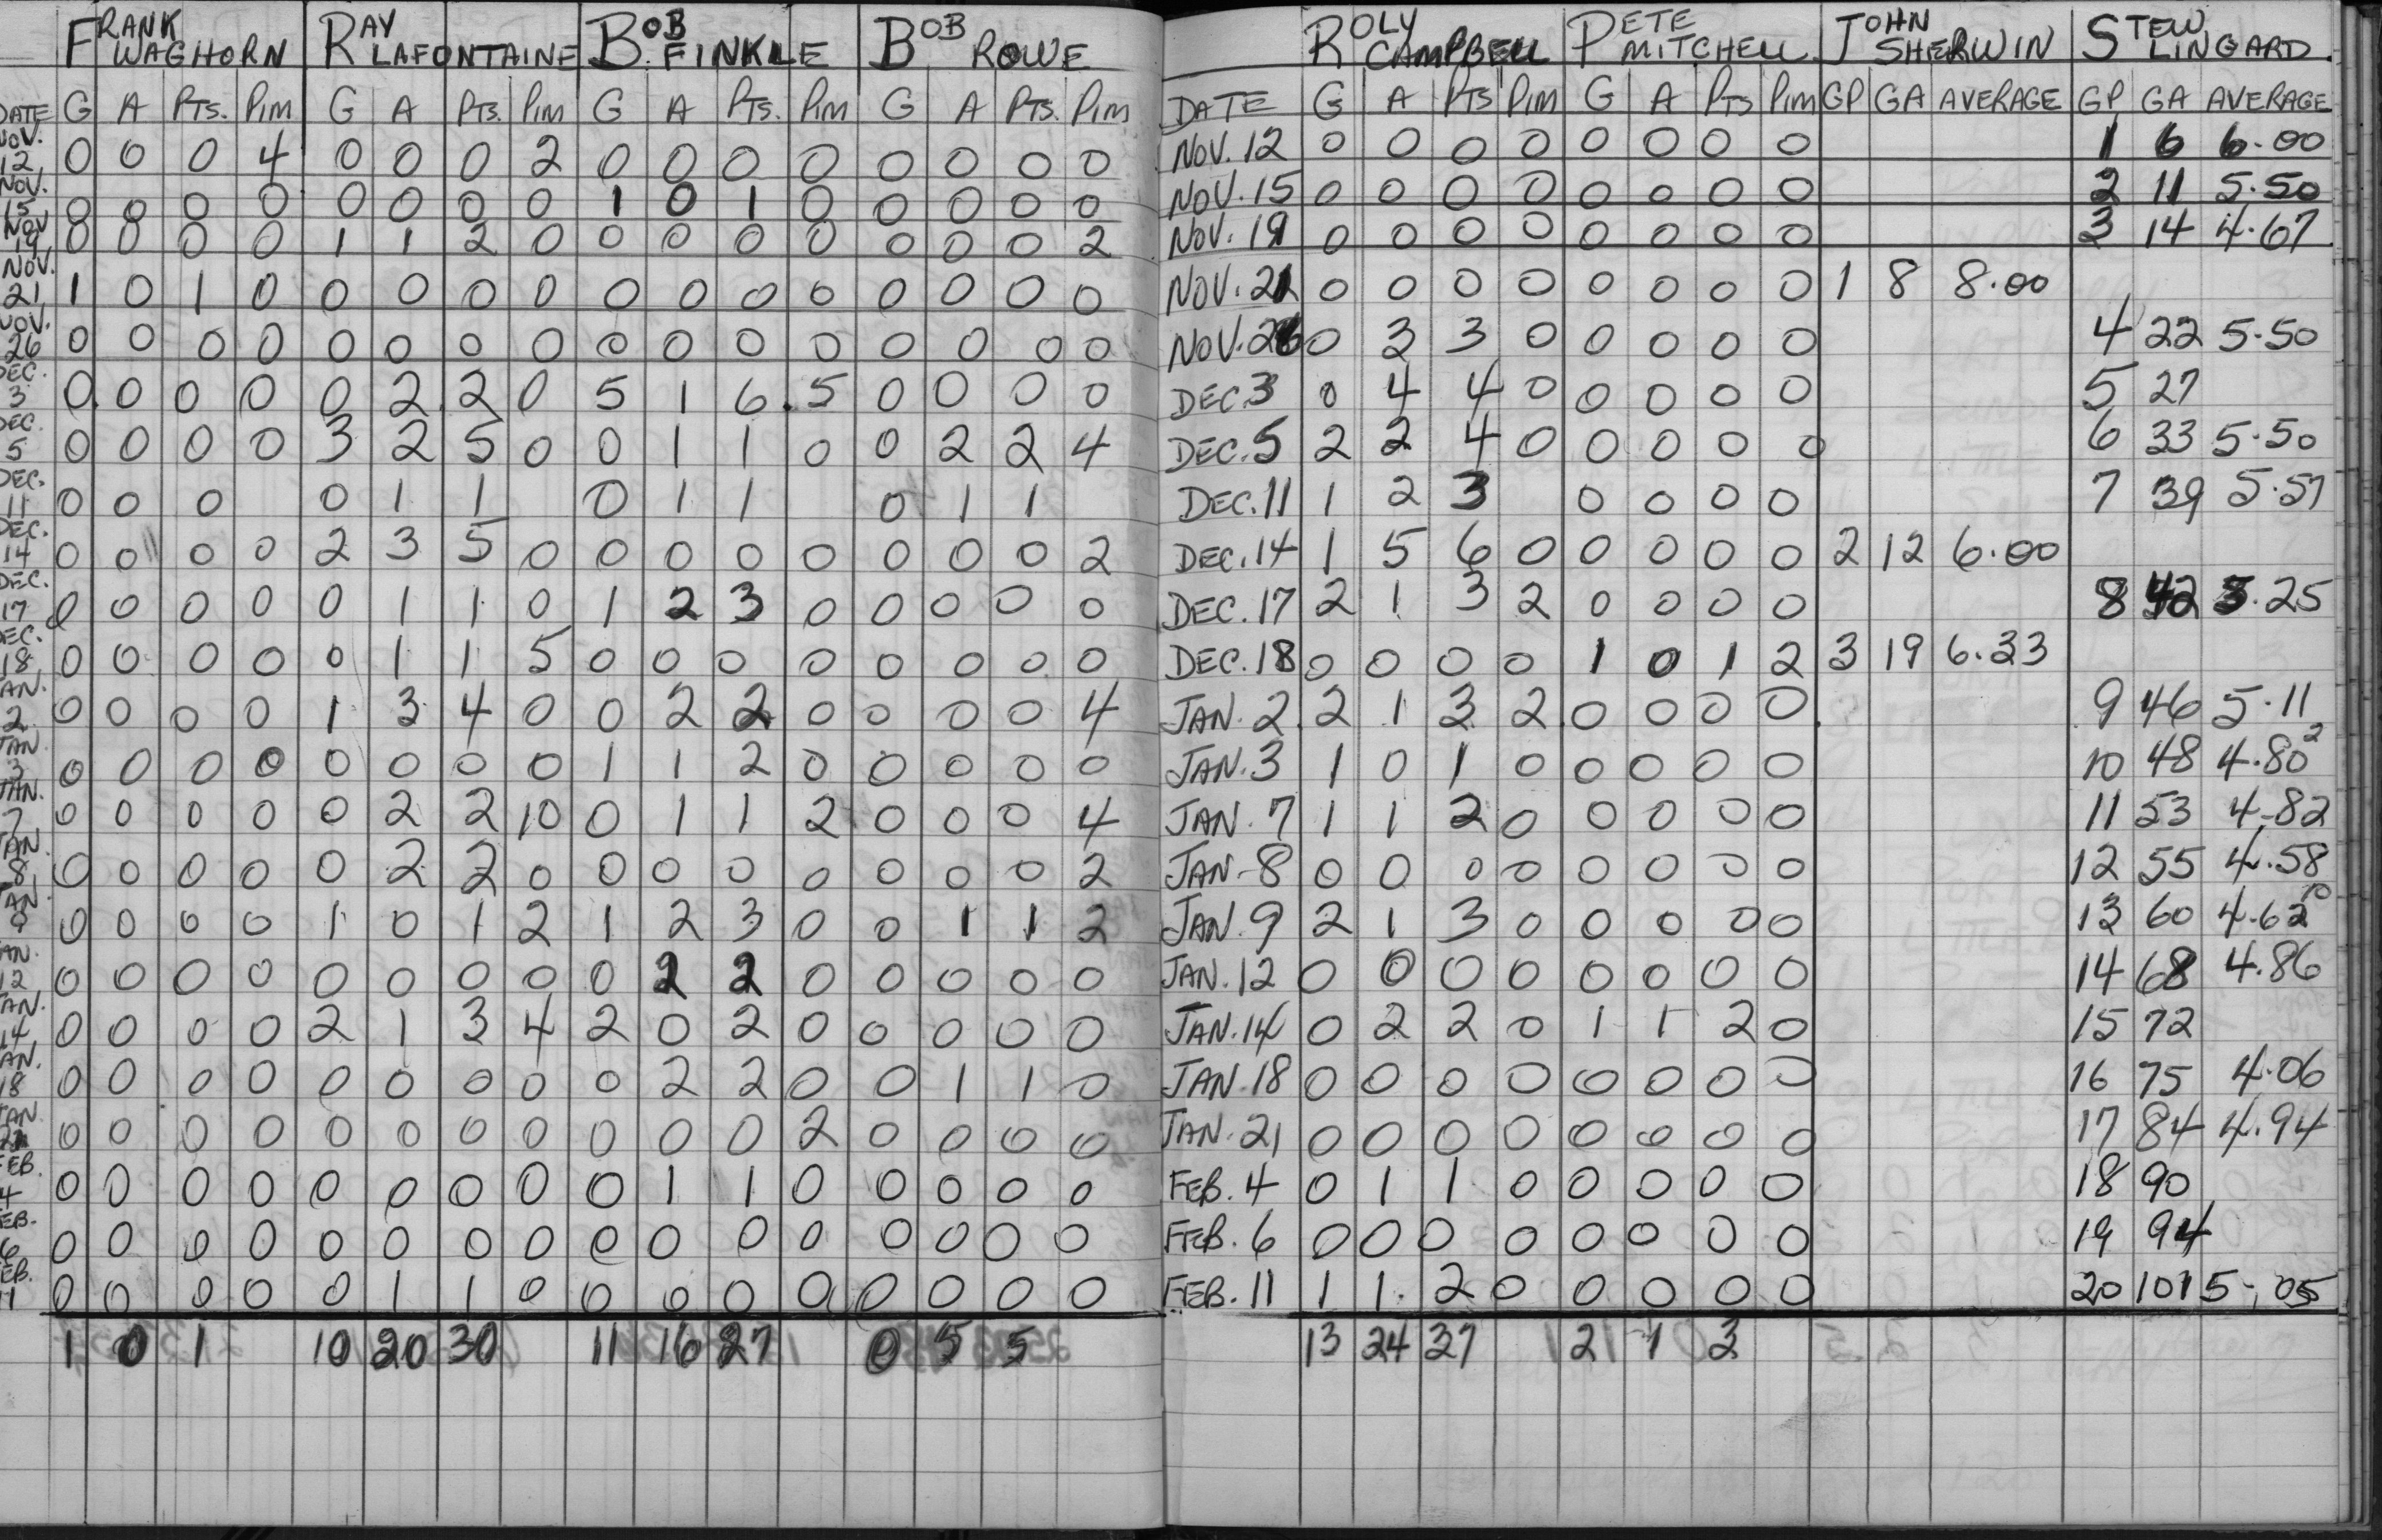 FRANK WAGHORN RAY LAFONTAINE BOB FINKLE BOB ROWE
DATE G A PTS. PIM G A PTS. PIM G A PTS. PIM G A PTS. PIM
NOV. 12 0 0 0 4 0 0 0 2 0 0 0 0 0 0 0 0
NOV. 15 0 0 0 0 0 0 0 0 1 0 1 0 0 0 0 0
NOV 19 0 0 0 0 1 1 2 0 0 0 0 0 0 0 0 2
NOV. 21 1 0 1 0 0 0 0 0 0 0 0 0 0 0 0 0
NOV. 26 0 0 0 0 0 0 0 0 0 0 0 0 0 0 0 0
DEC. 3 0 0 0 0 0 2 2 0 5 1 6 5 0 0 0 0
DEC. 5 0 0 0 0 3 2 5 0 0 1 1 0 0 2 2 4
DEC. 11 0 0 0 0 1 1 0 1 1 0 1 1
DEC. 14 0 0 0 0 2 3 5 0 0 0 0 0 0 0 0 2
DEC. 17 0 0 0 0 0 1 1 0 1 2 3 0 0 0 0 0
DEC. 18 0 0 0 0 0 1 1 5 0 0 0 0 0 0 0 0
JAN. 2 0 0 0 0 1 3 4 0 0 2 2 0 0 0 0 4
JAN 3 0 0 0 0 0 0 0 0 1 1 2 0 0 0 0 0
JAN. 7 0 0 0 0 0 2 2 10 0 1 1 2 0 0 0 4
JAN. 8 0 0 0 0 0 2 2 0 0 0 0 0 0 0 0 2
JAN. 9 0 0 0 0 1 0 1 2 1 2 3 0 0 1 1 2
JAN. 12 0 0 0 0 0 0 0 0 0 2 2 0 0 0 0 0
JAN. 14 0 0 0 0 2 1 3 4 2 0 2 0 0 0 0 0
JAN. 18 0 0 0 0 0 0 0 0 0 2 2 0 0 1 1 0
JAN 21 0 0 0 0 0 0 0 0 0 0 0 2 0 0 0 0
FEB. 4 0 0 0 0 0 0 0 0 0 1 1 0 0 0 0 0
FEB. 6 0 0 0 0 0 0 0 0 0 0 0 0 0 0 0 0
FEB. 11 0 0 0 0 0 1 1 0 0 0 0 0 0 0 0 0
1 0 1 10 20 30 11 16 27 0 5 5
ROLY CAMPBELL PETE MITCHELL JOHN SHERWIN STEW LINGARD
DATE G A PTS PIM G A PTS PIM GP GA AVERAGE GP GA AVERAGE
NOV. 12 0 0 0 0 0 0 0 0 1 6 6.00
NOV. 15 0 0 0 0 0 0 0 0 2 11 5.50
NOV. 19 0 0 0 0 0 0 0 0 3 14 4.67
NOV. 21 0 0 0 0 0 0 0 0 1 8 8.00
NOV. 26 0 3 3 0 0 0 0 0 4 22 5.50
DEC. 3 0 4 4 0 0 0 0 0 5 27
DEC. 5 2 2 4 0 0 0 0 0 6 33 5.50
DEC. 11 1 2 3 0 0 0 0 7 39 5.57
DEC. 14 1 5 6 0 0 0 0 0 2 12 6.00
DEC. 17 2 1 3 2 0 0 0 0 8 42 5.25
DEC. 18 0 0 0 0 1 0 1 2 3 19 6.33
JAN. 2 2 1 3 2 0 0 0 0 9 46 5.11
JAN. 3 1 0 1 0 0 0 0 0 10 48 4.80
JAN. 7 1 1 2 0 0 0 0 0 11 53 4.82
JAN. 8 0 0 0 0 0 0 0 0 12 55 4.58
JAN. 9 2 1 3 0 0 0 0 0 13 60 4.62
JAN. 12 0 0 0 0 0 0 0 0 14 68 4.86
JAN. 14 0 2 2 0 1 1 2 0 15 72
JAN. 18 0 0 0 0 0 0 0 0 16 75 4.06
JAN. 21 0 0 0 0 0 0 0 0 17 84 4.94
FEB. 4 0 1 1 0 0 0 0 0 18 90
FEB. 6 0 0 0 0 0 0 0 0 19 94
FEB. 11 1 1 2 0 0 0 0 0 20 101 5.05
13 24 37 2 1 3